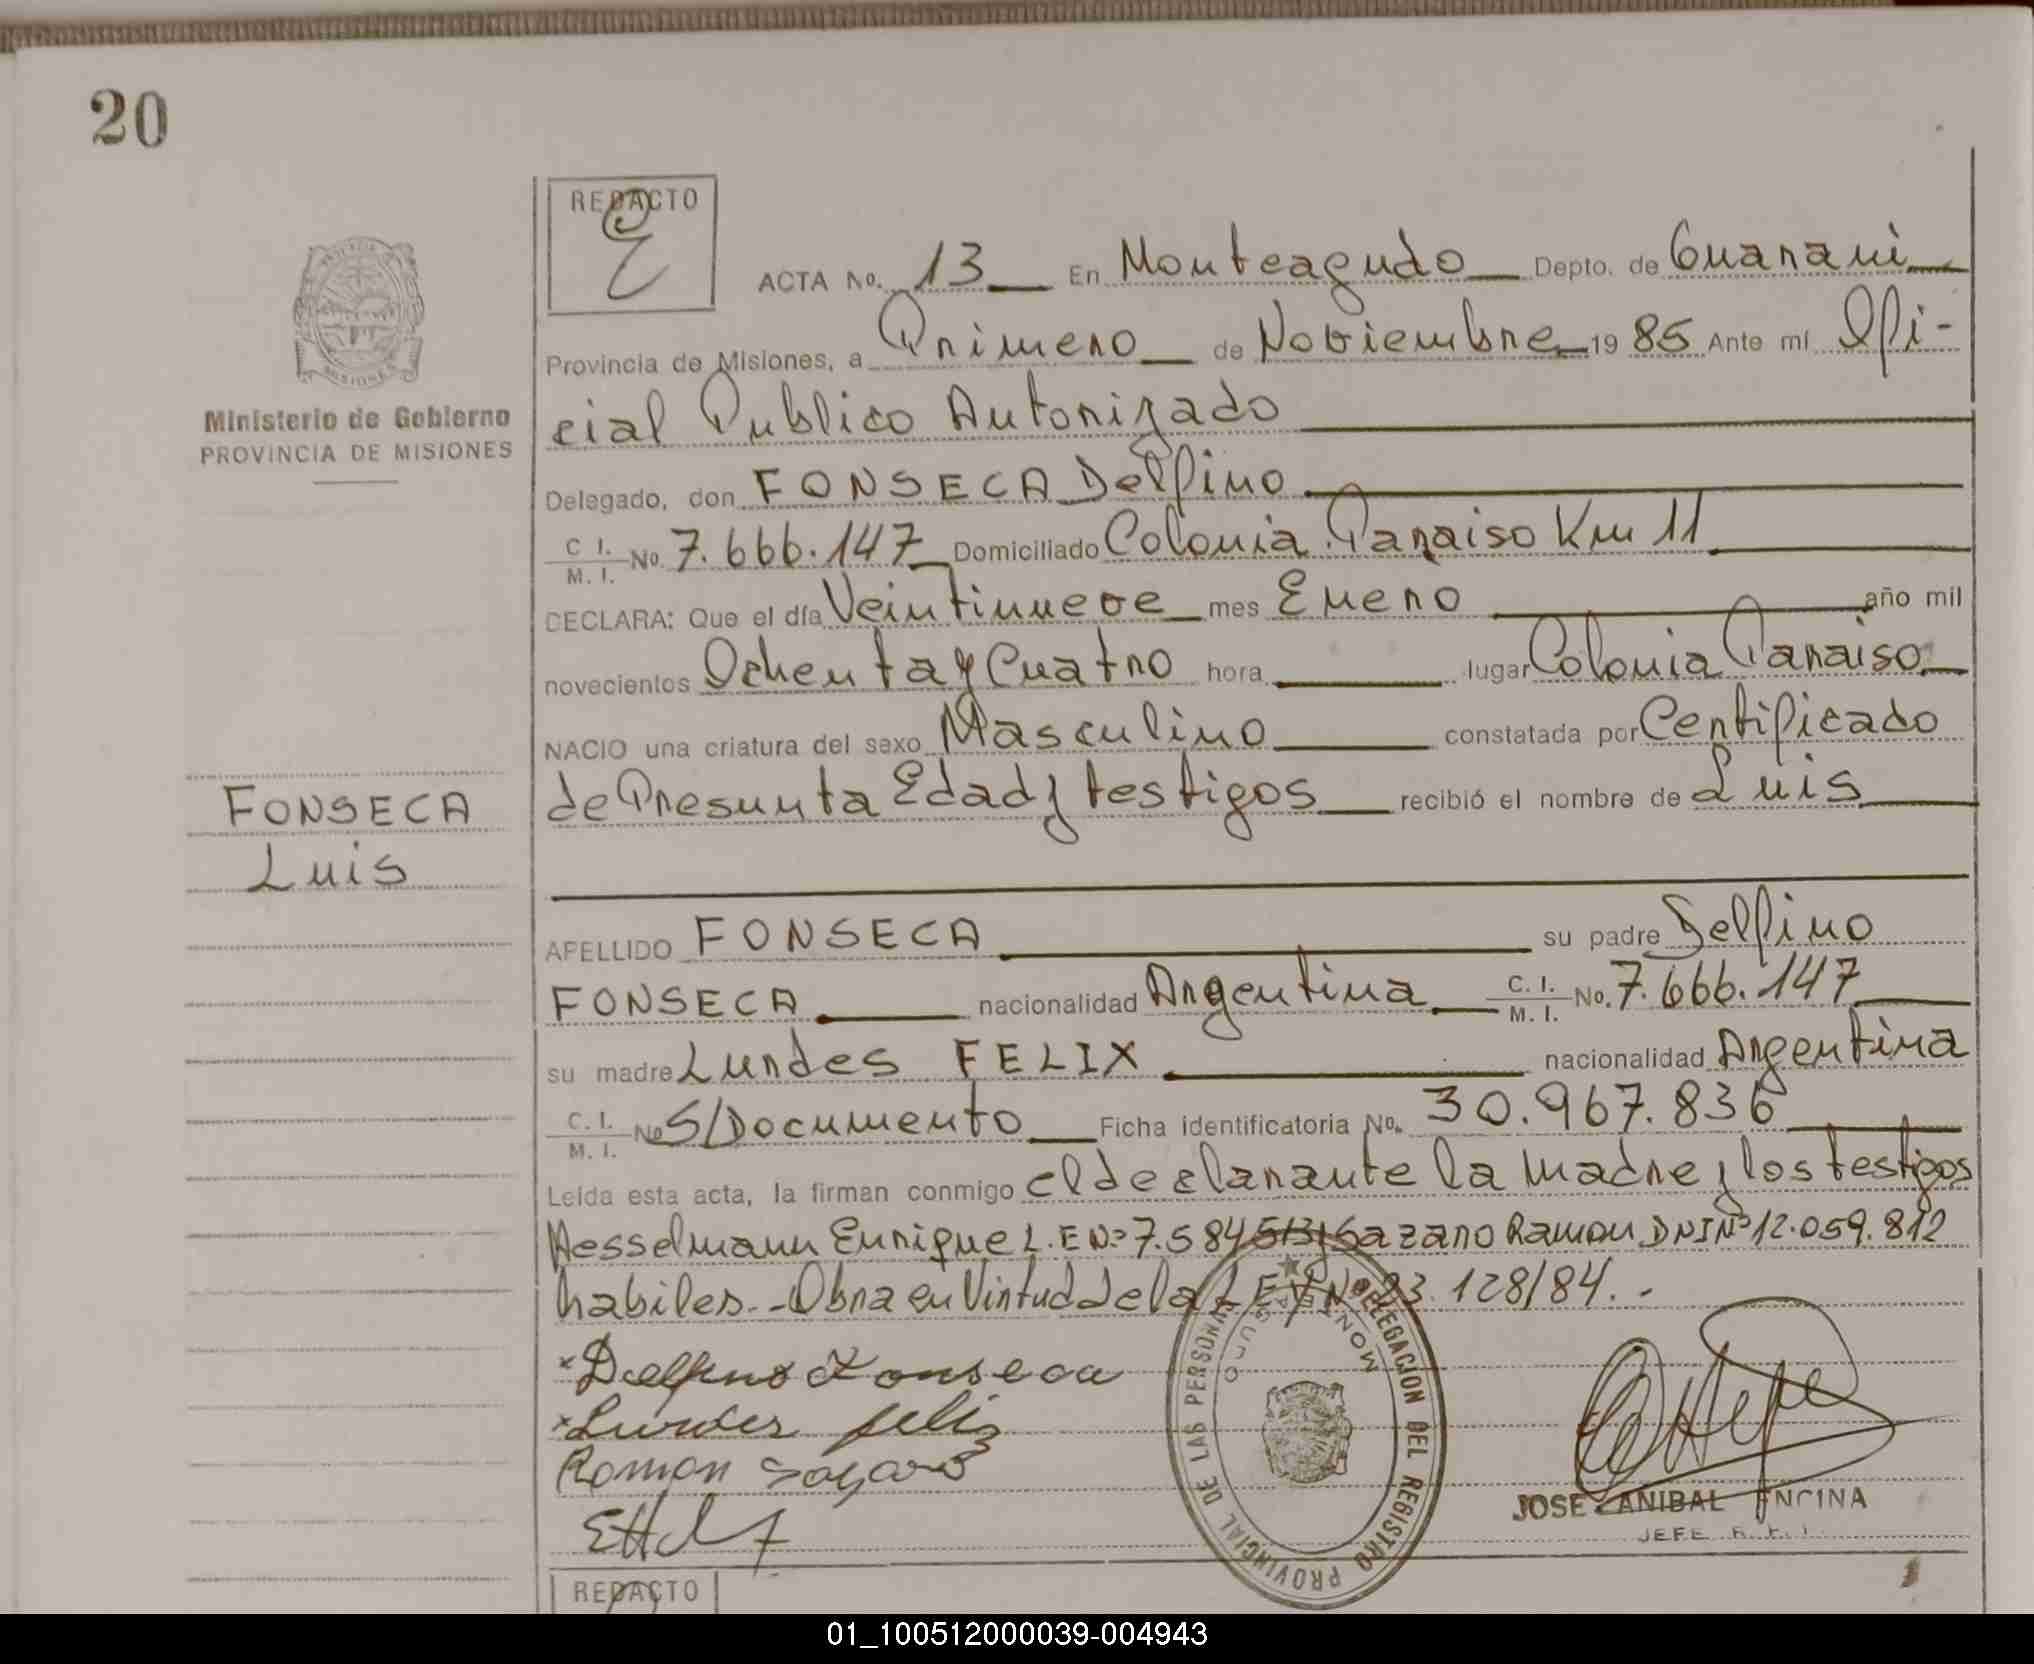 20
REDACTO
ACTA No. 13 En Monteagudo Depto. de Guarani
Provincia de Misiones, a Primero de Noviembre 1985 Ante mí Ofi-
cial Publico Autorizado
Delegado, don FONSECA Delfino
C I. M. I. No. 7.666.147 Domiciliado Colonia Paraiso Km 11
DECLARA: Que el día Veintinueve mes Enero año mil
novecientos Ochenta y Cuatro hora lugar Colonia Paraiso
NACIO una criatura del sexo Masculino constatada por Certificado
de Presunta Edad y testigos recibió el nombre de Luis
APELLIDO FONSECA su padre Delfino
FONSECA nacionalidad Argentina C. I. M. I. No. 7.666.147
su madre Lurdes FELIX nacionalidad Argentina
C. I. M. I. No S/Documento Ficha identificatoria No. 30.967.836
Leída esta acta, la firman conmigo el declarante la madre y los testigos
Hesselmann Enrique L.E Nº 7.584.513 y Sazaro Ramon DNI Nº 12.059.812
habiles.-Obra en Virtud de la LEY Nº 23.128/84.-
Delfino Fonseca
Lurdes felix
Ramon
JOSE ANIBAL ENCINA
JEFE
DELEGACION DEL REGISTRO PROVINCIAL DE LAS PERSONAS
MISIONES
Ministerio de Gobierno
PROVINCIA DE MISIONES
FONSECA
Luis
REDACTO
01_100512000039-004943